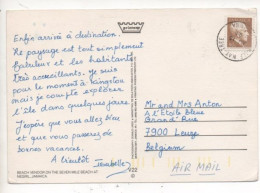 Enfin arrivé à destination.
Le paysage est tout simplement
fabuleux et les habitants
très accueillants. Je suis
pour le moment à Kingston
mais je compte explorer
l'île dans quelques jours.
J'espère que vous allez bien
et que vous passerez de
bonnes vacances.
A bientôt
Isabelle
BEACH VENDOR ON THE SEVEN MILE BEACH AT
NEGRIL, JAMAICA
Mr and Mrs Anton
A l'Etoile Bleue
Grand' Rue
7900 Leuze
Belgium
AIR MAIL